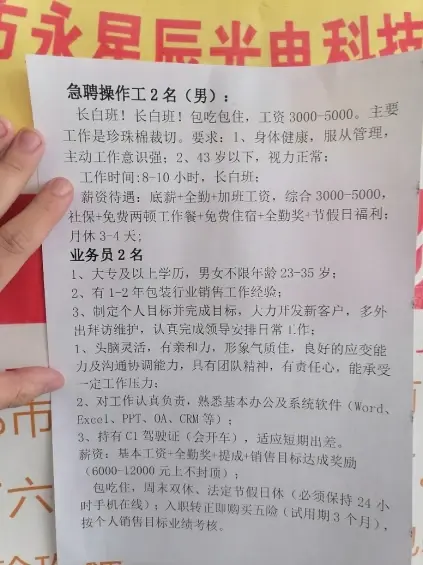 方永星辰光电科技
急聘操作工2名（男）：
长白班！长白班！包吃包住，工资3000-5000。主要
工作是珍珠棉裁切。要求：1、身体健康，服从管理，
主动工作意识强；2、43岁以下，视力正常；
工作时间：8-10小时，长白班；
薪资待遇：底薪+全勤+加班工资，综合3000-5000，
社保+免费两顿工作餐+免费住宿+全勤奖+节假日福利；
月休3-4天；
业务员2名
1、大专及以上学历，男女不限年龄23-35岁；
2、有1-2年包装行业销售工作经验；
3、制定个人目标并完成目标，大力开发新客户，多外
出拜访维护，认真完成领导安排日常工作；
1、头脑灵活，有亲和力，形象气质佳，良好的应变能
力及沟通协调能力，具有团队精神，有责任心，能承受
一定工作压力；
2、对工作认真负责，熟悉基本办公及系统软件（Word、
Excel、PPT、OA、CRM等）；
3、持有C1驾驶证（会开车），适应短期出差。
薪资：基本工资+全勤奖+提成+销售目标达成奖励
（6000-12000元上不封顶）；
包吃住，周末双休、法定节假日休（必须保持24小
时手机在线）；入职转正即购买五险（试用期3个月），
按个人销售目标业绩考核。
市
六